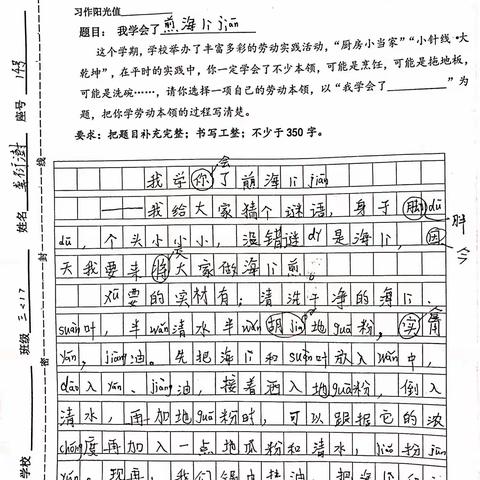 习作阳光值
题目：我学会了煎海lì jiān
这个学期，学校举办了丰富多彩的劳动实践活动，“厨房小当家”“小针线·大
乾坤”，在平时的实践中，你一定学会了不少本领，可能是烹饪，可能是拖地板，
可能是洗碗……，请你选择一项自己的劳动本领，以“我学会了”为
题，把你学劳动本领的过程写清楚。
要求：把题目补充完整；书写工整；不少于 350 字。
会
我学你了煎海lì jiān
——我给大家猜个谜语，身于胖dū
胖
dū，个头小小小，没错谜dǐ是海lì，因
今
天我要来将大家做海lì煎。
xū要的实材有：清洗干净的海lì、
suàn叶，半wǎn清水半wǎn胡jiāo地guā粉，实
yán，jiàng油。先把海lì和suàn叶放入wǎn中，
dào入yán、jiàng油，接着洒入地guā粉，倒入
清水，再加地guā粉时，可以跟据它的浓
chóng度再加入一点地瓜粉和清水，粉jūn
学校
班级 三217
姓名
座号 143
密
封
线